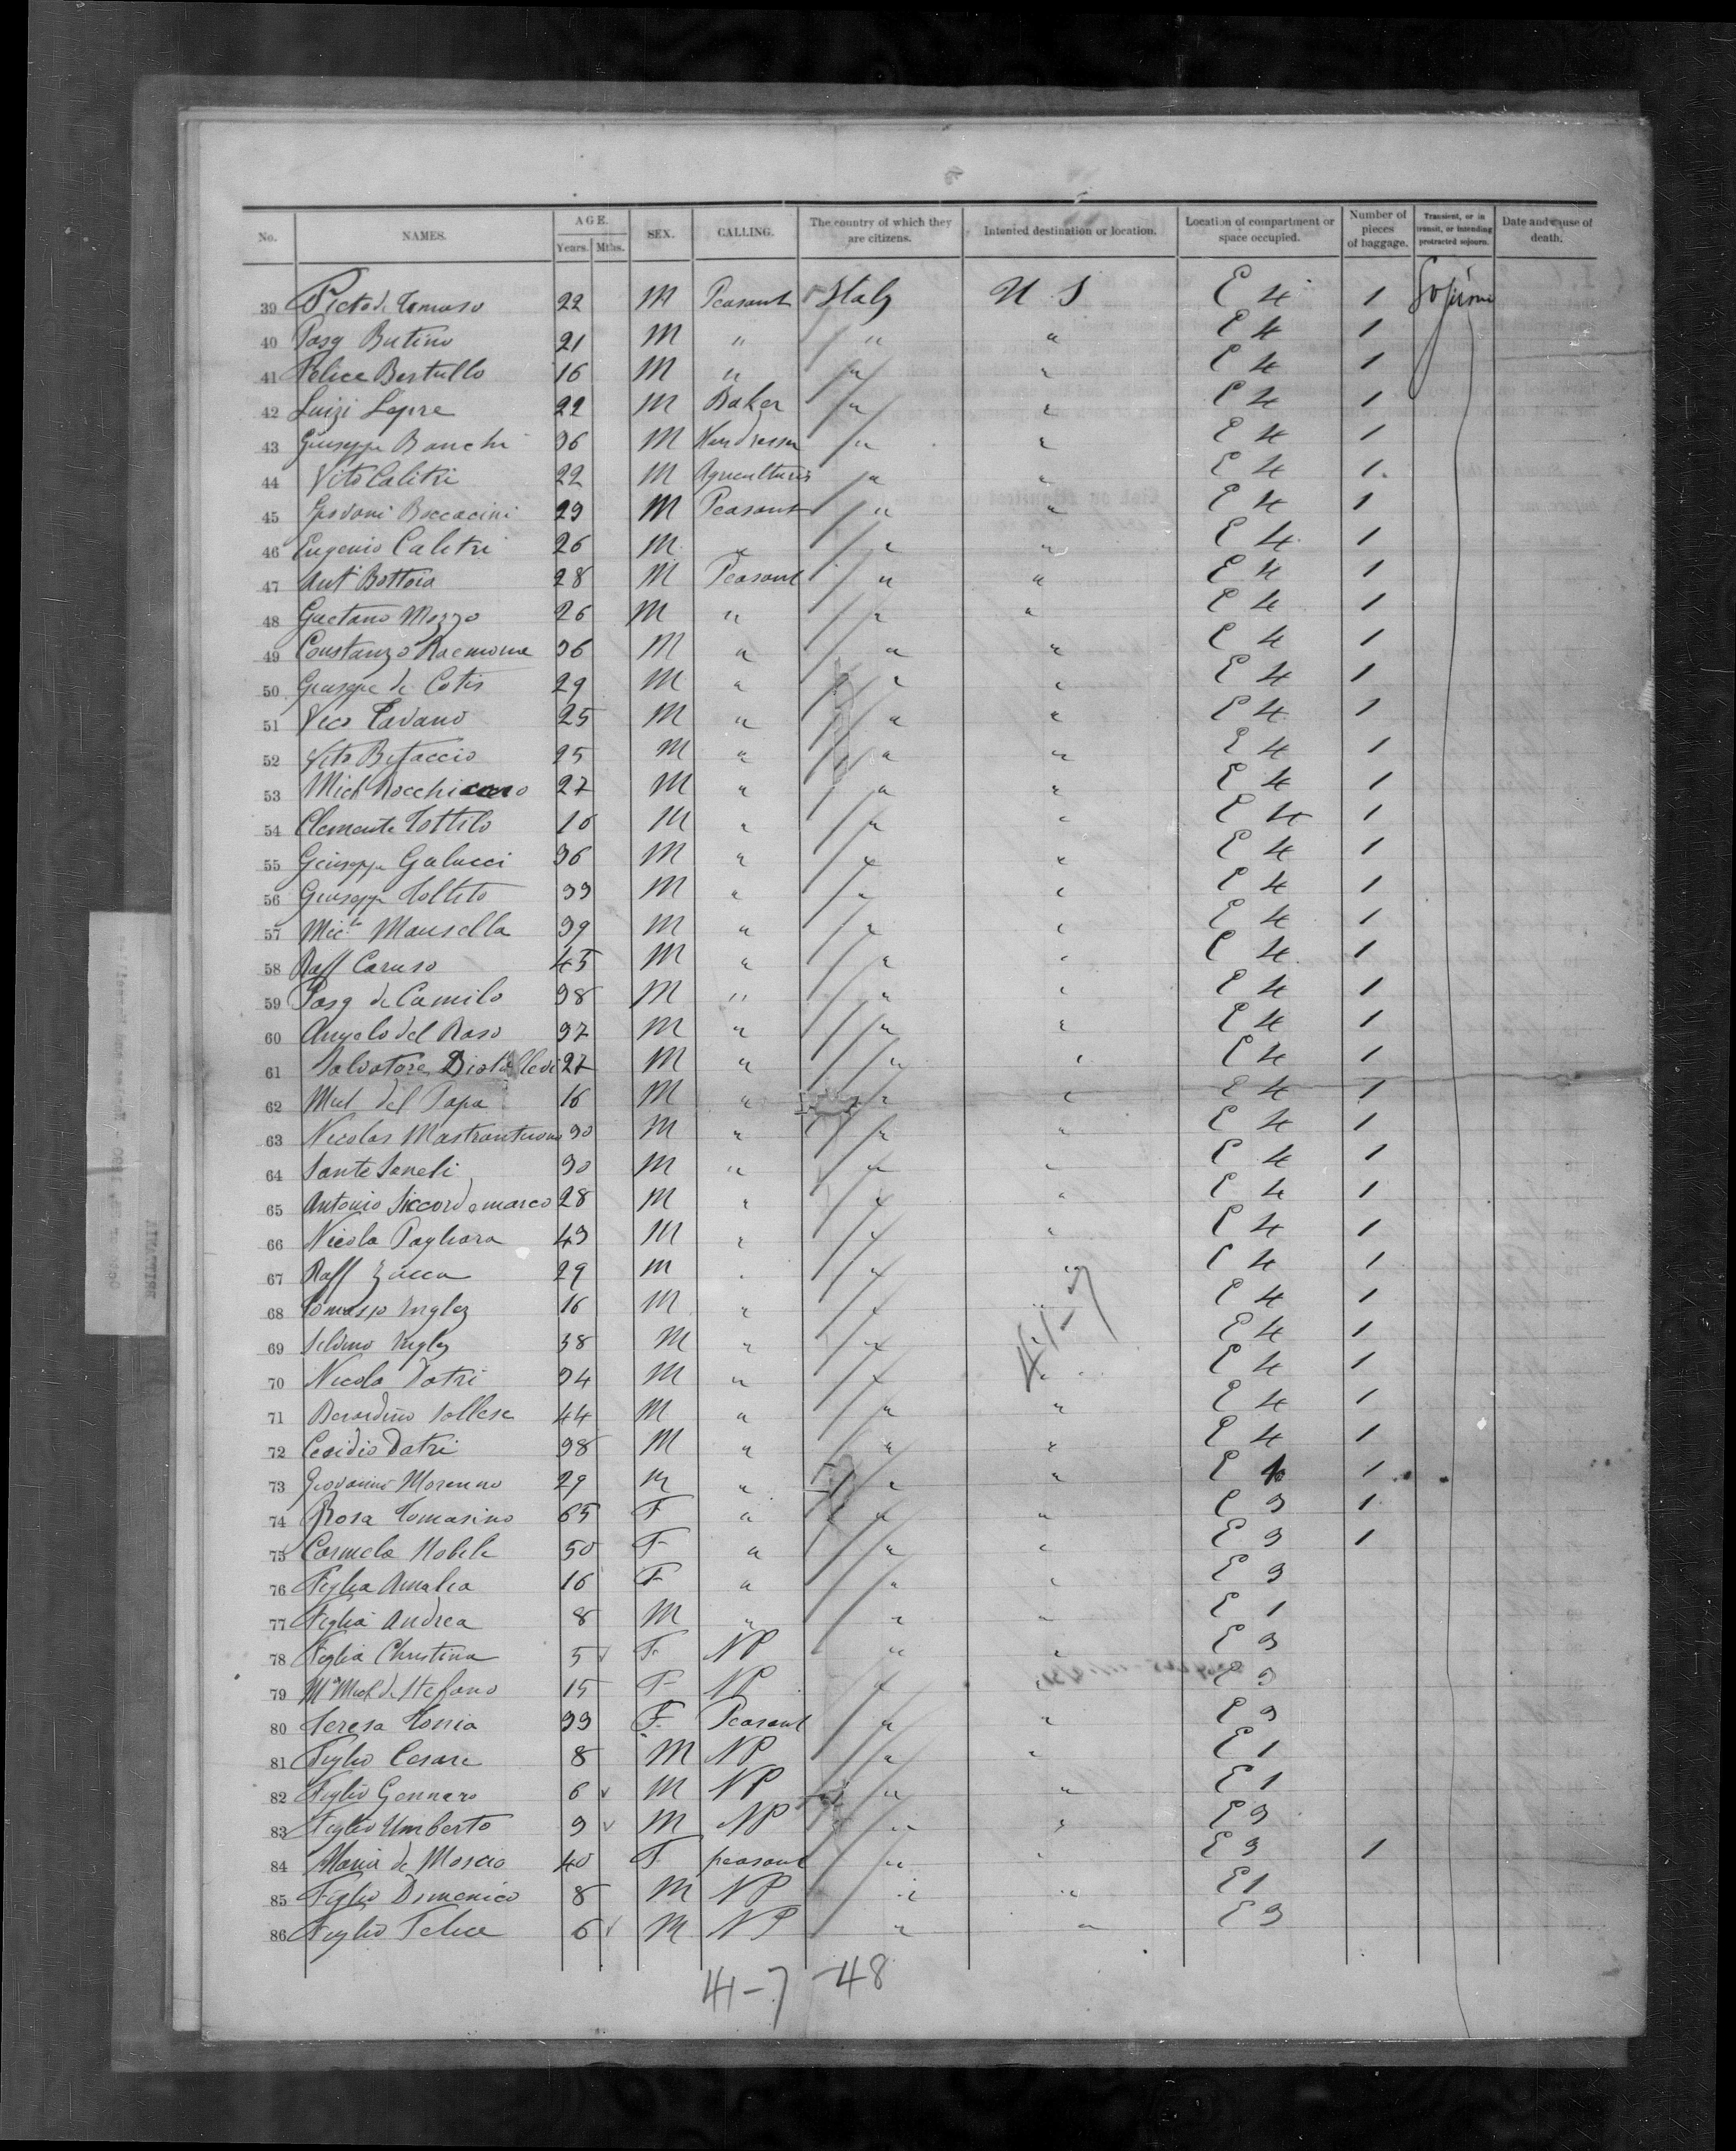 No. NAMES. AGE. Years. Mths. SEX. CALLING. The country of which they are citizens. Intented destination or location. Location of compartment or space occupied. Number of pieces of baggage. Transient, or in transit, or intending protracted sojourn. Date and cause of death.
39 Pieto di Tomaso 22 M Peasant Italy U S E 4 1 Sojourn
40 Pasq Butino 21 M " " " E 4 1
41 Felice Bertullo 16 M " " " E 4 1
42 Luigi Lepre 22 M Baker " " E 4 1
43 Giuseppe Banchi 36 M " " E 4 1
44 Vito Calitri 22 M Agriculturis " " E 4 1
45 Giovani Boccacini 29 M Peasant " " E 4 1
46 Eugenio Calitri 26 M " " " E 4 1
47 Ant Bottoia 28 M Peasant " " E 4 1
48 Gaetano Mozzo 26 M " " " E 4 1
49 Constanzo 36 M " " " E 4 1
50 Giuseppe di Cotis 29 M " " " E 4 1
51 Vico Tavano 25 M " " " E 4 1
52 Vito Bifaccio 25 M " " " E 4 1
53 Mich 27 M " " " E 4 1
54 Clemente Tottilo 16 M " " " E 4 1
55 Giuseppe Galucci 36 M " " " E 4 1
56 Giuseppe Tolleto 33 M " " " E 4 1
57 Mich Mansella 39 M " " " E 4 1
58 Raff Caruso 45 M " " " E 4 1
59 Pasq di Camilo 38 M " " " E 4 1
60 Angelo del Raso 37 M " " " E 4 1
61 Salvatore 27 M " " " E 4 1
62 del Papa 16 M " " " E 4 1
63 Nicolas Mastrantuono 30 M " " " E 4 1
64 Sante Saneli 30 M " " " E 4 1
65 Antonio Siccordemarco 28 M " " " E 4 1
66 Nicola Pagliara 43 M " " " E 4 1
67 Raff Zucca 29 M " " " E 4 1
68 Tomasso Inglez 16 M " " " E 4 1
41-7
69 Inglez 38 M " " " E 4 1
70 Nicola Datri 34 M " " " E 4 1
71 Berardino Sollese 44 M " " " E 4 1
72 Cesidio Datri 38 M " " " E 4 1
73 Giovanni Morenno 29 M " " " E 1
74 Rosa Tomasino 65 F " " " E 3 1
75 Carmela Nobile 50 F " " " E 3 1
76 Figlia Amalia 16 F " " " E 3
77 Figlia Andrea 8 M " " " E 1
78 Figlia Christina 5 F NP " " E 3
79 Mª Mich di Stefano 15 F NP " " E 3
80 Teresa Tossia 33 F Peasant " " E 3
81 Figlio Cesare 8 M NP " " E 1
82 Figlio Gennaro 6 M NP " " E 1
83 Figlio Umberto 3 M NP " " E 3
84 Maria de Moscio 40 F peasant " " E 3 1
85 Figlio Domenico 8 M NP " " E 1
86 Figlio Felice 6 M NP " " E 3
41-7 -48